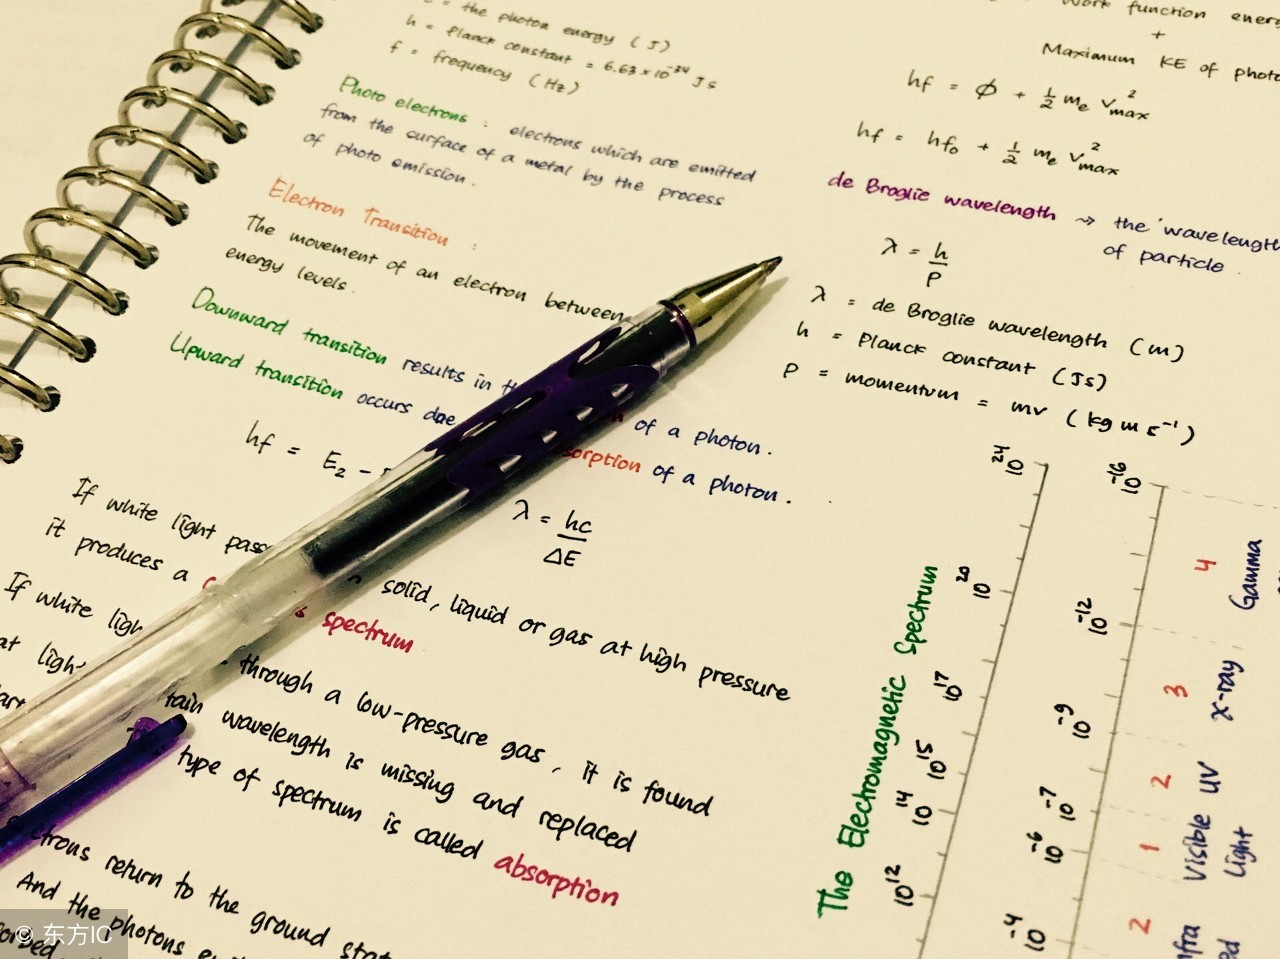 = the photon energy (J)
h = Planck constant = 6.63 × 10⁻³⁴ Js
f = frequency (Hz)
Photo electrons : electrons which are emitted
from the surface of a metal by the process
of photo emission.
Electron Transition :
The movement of an electron between
energy levels.
Downward transition results in of a photon.
Upward transition occurs due of a photon.
hf = E₂ -
λ = hc
ΔE
If white light solid, liquid or gas at high pressure
it produces a spectrum
If white through a low-pressure gas, it is found
wavelength is missing and replaced
type of spectrum is called absorption
return to the ground
And the photons
Work function
+
Maximum KE of
hf = ϕ + ½ mₑ v²max
hf = hf₀ + ½ mₑ v²max
de Broglie wavelength ⇝ the wavelength
of particle.
λ = h
p
λ = de Broglie wavelength (m)
h = Planck constant (Js)
p = momentum = mv (kg m s⁻¹)
The Electromagnetic Spectrum
10²⁴
10²⁰
10¹⁷
10¹⁵
10¹⁴
10¹²
10⁻¹⁶
10⁻¹²
10⁻⁹
10⁻⁷
10⁻⁶
10⁻⁴
4 Gamma
3 X-ray
2 UV
1 Visible
Light
2
© 东方IC